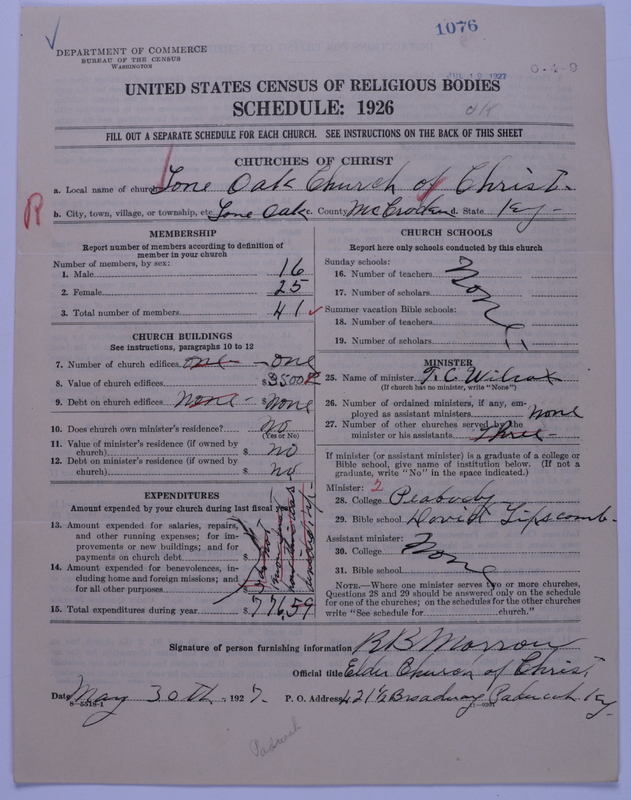 1076
DEPARTMENT OF COMMERCE
BUREAU OF THE CENSUS
WASHINGTON
JUL 19 1927
0-4-9
UNITED STATES CENSUS OF RELIGIOUS BODIES
SCHEDULE: 1926
FILL OUT A SEPARATE SCHEDULE FOR EACH CHURCH. SEE INSTRUCTIONS ON THE BACK OF THIS SHEET
CHURCHES OF CHRIST
a. Local name of church Lone Oak Church of Christ.
R
b. City, town, village, or township, etc. Lone Oak c. County McCracken d. State Ky-
MEMBERSHIP
Report number of members according to definition of
member in your church
Number of members, by sex:
1. Male 16
2. Female 25
3. Total number of members 41
CHURCH BUILDINGS
See instructions, paragraphs 10 to 12
7. Number of church edifices one - one
8. Value of church edifices $3500
9. Debt on church edifices None - $ None
10. Does church own minister's residence? No
(Yes or No)
11. Value of minister's residence (if owned by
church) $ no
12. Debt on minister's residence (if owned by
church) $ no
EXPENDITURES
Amount expended by your church during last fiscal year
13. Amount expended for salaries, repairs,
and other running expenses; for im-
provements or new buildings; and for
payments on church debt $
14. Amount expended for benevolences, in-
cluding home and foreign missions; and
for all other purposes $
15. Total expenditures during year $ 776.59
CHURCH SCHOOLS
Report here only schools conducted by this church
Sunday schools:
16. Number of teachers
17. Number of scholars
None
Summer vacation Bible schools:
18. Number of teachers
19. Number of scholars
MINISTER
25. Name of minister T. C. Wilcox
(If church has no minister, write "None")
26. Number of ordained ministers, if any, em-
ployed as assistant ministers none
27. Number of other churches served by the
minister or his assistants three
If minister (or assistant minister) is a graduate of a college or
Bible school, give name of institution below. (If not a
graduate, write "No" in the space indicated.)
Minister: 2
28. College Peabody
29. Bible school David Lipscomb
Assistant minister:
30. College None
31. Bible school
NOTE.—Where one minister serves two or more churches,
Questions 28 and 29 should be answered only on the schedule
for one of the churches; on the schedules for the other churches
write "See schedule for church."
Signature of person furnishing information R B Morrow
Official title Elder Church of Christ
Date May 30th, 1927. P. O. Address 421½ Broadway Paducah Ky-
8-5518-1
Paducah